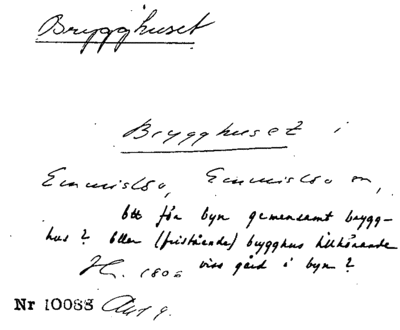 Brygghuset
Brygghuset i
Emmislöv, Emmislövs sn,
Ett för byn gemensamt brygg-
hus? Eller (fristående) brygghus tillhörande
viss gård i byn?
Nr 10088